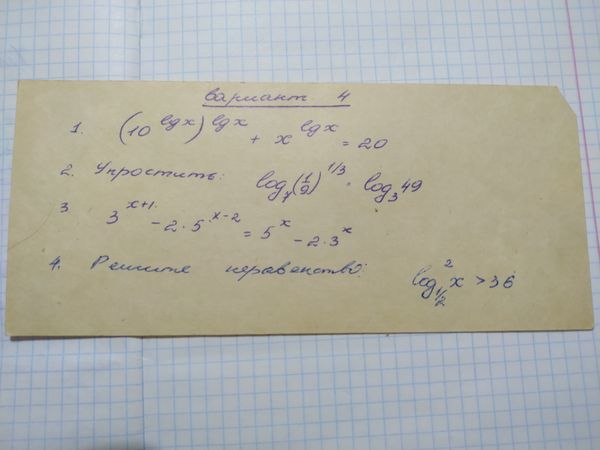 Вариант 4
1. (10^lgx)^lgx + x^lgx = 20
2. Упростить: log₇(1/9)^1/3 · log₃49
3. 3^x+1 - 2·5^x-2 = 5^x - 2·3^x
4. Решите неравенство: log²_1/2 x > 36